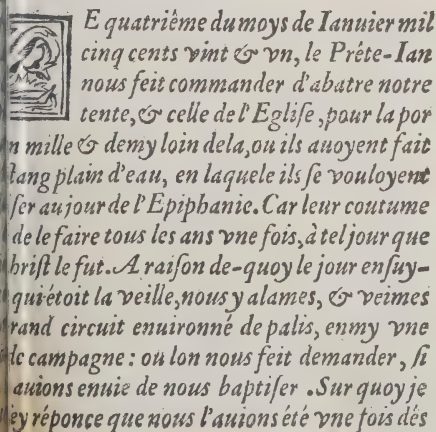 LE quatriême du moys de Ianuier mil
cinq cents vint & vn, le Prête-Ian
nous feit commander d'abatre notre
tente, & celle de l'Eglise, pour la por
n mille & demy loin dela, ou ils auoyent fait
tang plain d'eau, en laquele ils se vouloyent
ser au jour de l'Epiphanie. Car leur coutume
de le faire tous les ans vne fois, à tel jour que
hrist le fut. A raison de-quoy le jour ensuy-
qui étoit la veille, nous y alames, & veimes
rand circuit enuironné de palis, enmy vne
de campagne: ou lon nous feit demander, si
auions enuie de nous baptiser. Sur quoy je
ey réponce que nous l'auions été vne fois dés